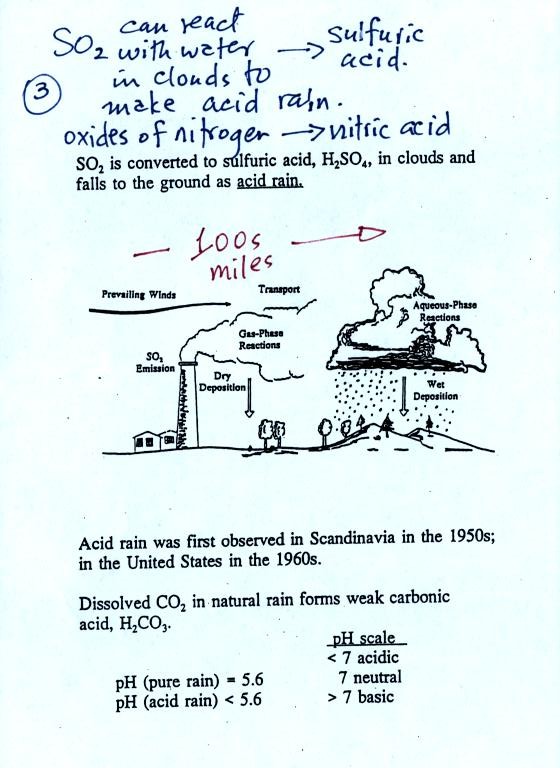 SO₂ can react
with water → sulfuric
in clouds to acid.
③ make acid rain.
oxides of nitrogen → nitric acid
SO₂ is converted to sulfuric acid, H₂SO₄, in clouds and
falls to the ground as acid rain.
100s
miles
Prevailing Winds
Transport
Gas-Phase
Reactions
Aqueous-Phase
Reactions
SO₂
Emission
Dry
Deposition
Wet
Deposition
Acid rain was first observed in Scandinavia in the 1950s;
in the United States in the 1960s.
Dissolved CO₂ in natural rain forms weak carbonic
acid, H₂CO₃.
pH scale
< 7 acidic
7 neutral
> 7 basic
pH (pure rain) = 5.6
pH (acid rain) < 5.6